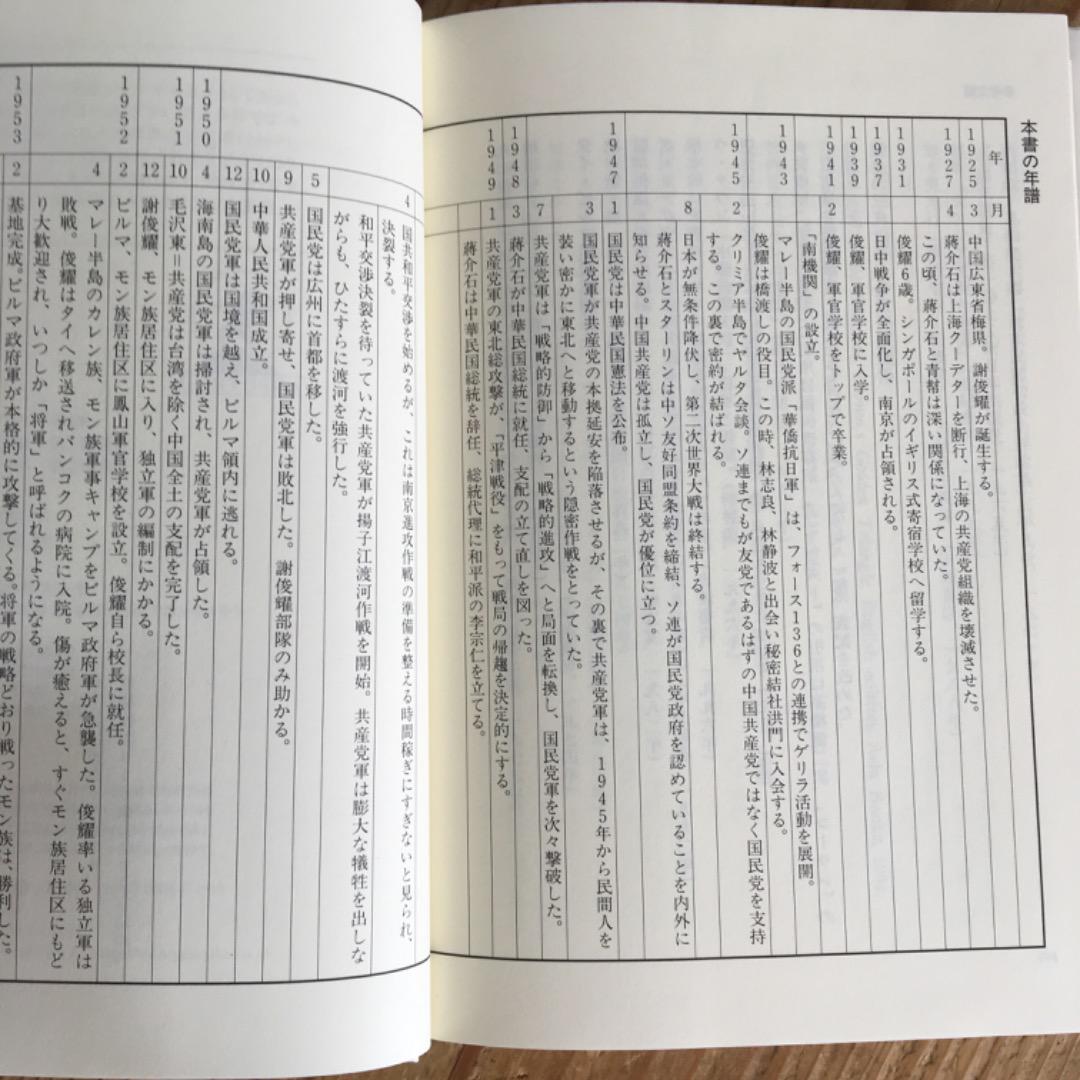 本書の年譜
年
月
1925
3
中国広東省梅県。謝俊耀が誕生する。
1927
4
蔣介石は上海クーデターを断行、上海の共産党組織を壊滅させた。
この頃、蔣介石と青幇は深い関係になっていた。
1931
俊耀6歳。シンガポールのイギリス式寄宿学校へ留学する。
1937
日中戦争が全面化し、南京が占領される。
1939
俊耀、軍官学校に入学。
1941
2
俊耀、軍官学校をトップで卒業。
「南機関」の設立。
1943
マレー半島の国民党派「華僑抗日軍」は、フォース136との連携でゲリラ活動を展開。
俊耀は橋渡しの役目。この時、林志良、林静波と出会い秘密結社洪門に入会する。
1945
2
クリミア半島でヤルタ会談。ソ連までもが友党であるはずの中国共産党ではなく国民党を支持
する。この裏で密約が結ばれる。
8
日本が無条件降伏し、第二次世界大戦は終結する。
蔣介石とスターリンは中ソ友好同盟条約を締結、ソ連が国民党政府を認めていることを内外に
知らせる。中国共産党は孤立し、国民党が優位に立つ。
1947
1
国民党は中華民国憲法を公布。
3
国民党軍が共産党の本拠延安を陥落させるが、その裏で共産党軍は、1945年から民間人を
装い密かに東北へと移動するという隠密作戦をとっていた。
7
共産党軍は「戦略的防御」から「戦略的進攻」へと局面を転換し、国民党軍を次々撃破した。
1948
3
蔣介石が中華民国総統に就任、支配の立て直しを図った。
1949
1
共産党軍の東北総攻撃が、「平津戦役」をもって戦局の帰趨を決定的にする。
蔣介石は中華民国総統を辞任、総統代理に和平派の李宗仁を立てる。
4
国共和平交渉を始めるが、これは南京進攻作戦の準備を整える時間稼ぎにすぎないと見られ、
決裂する。
和平交渉決裂を待っていた共産党軍が揚子江渡河作戦を開始。共産党軍は膨大な犠牲を出しな
がらも、ひたすらに渡河を強行した。
5
国民党は広州に首都を移した。
9
共産党軍が押し寄せ、国民党軍は敗北した。謝俊耀部隊のみ助かる。
10
中華人民共和国成立。
12
国民党軍は国境を越え、ビルマ領内に逃れる。
1950
4
海南島の国民党軍は掃討され、共産党軍が占領した。
1951
10
毛沢東＝共産党は台湾を除く中国全土の支配を完了した。
12
謝俊耀、モン族居住区に入り、独立軍の編制にかかる。
1952
2
ビルマ、モン族居住区に鳳山軍官学校を設立。俊耀自ら校長に就任。
4
マレー半島のカレン族、モン族軍事キャンプをビルマ政府軍が急襲した。俊耀率いる独立軍は
敗戦。俊耀はタイへ移送されバンコクの病院に入院。傷が癒えると、すぐモン族居住区にもど
り大歓迎され、いつしか「将軍」と呼ばれるようになる。
1953
2
基地完成。ビルマ政府軍が本格的に攻撃してくる。将軍の戦略どおり戦ったモン族は、勝利した。